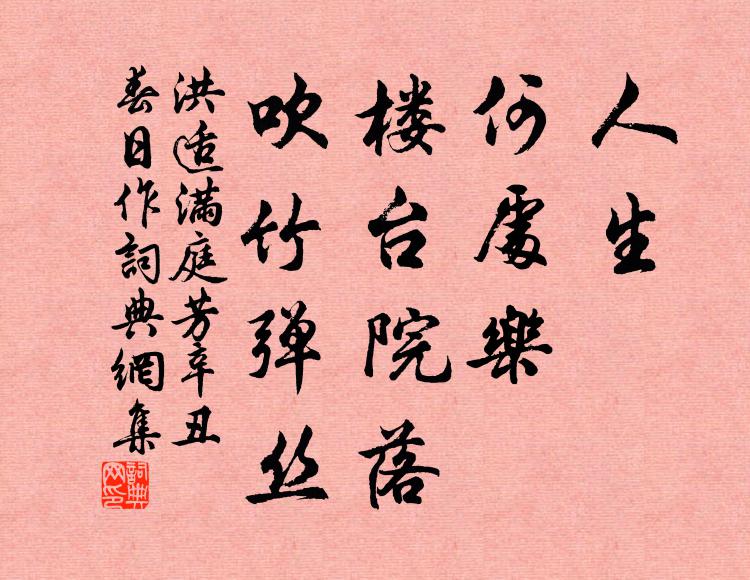 人生
何處樂
楼台院落
吹竹弹丝
洪适满庭芳辛丑
春日作詞典網集
詞典
网印